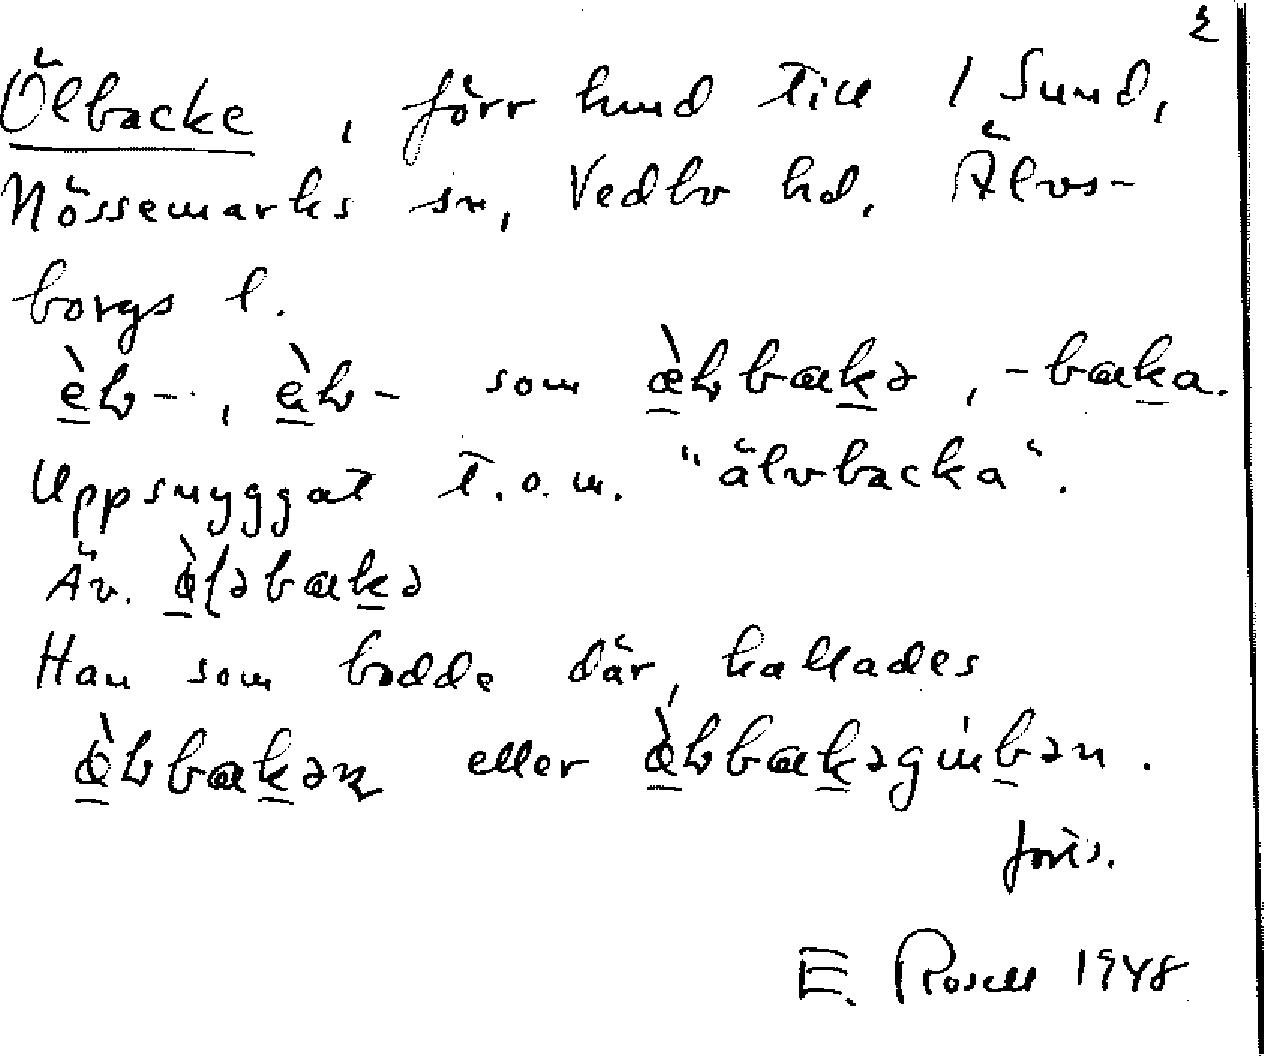 2
Ölbacke, förr hmd till 1 Sund,
Nössemarks sn, Vedbo hd, Älvs-
borgs l.
èɫ-, èɫ- som æ̀ɫbakə, -baka.
Uppsnyggat t.o.m. "älvbacka".
Äv. ə̀ləbakə
Han som bodde där, kallades
ə̀ɫbakən eller ə̀ɫbakəgubən.
forts.
E. Rosell 1948